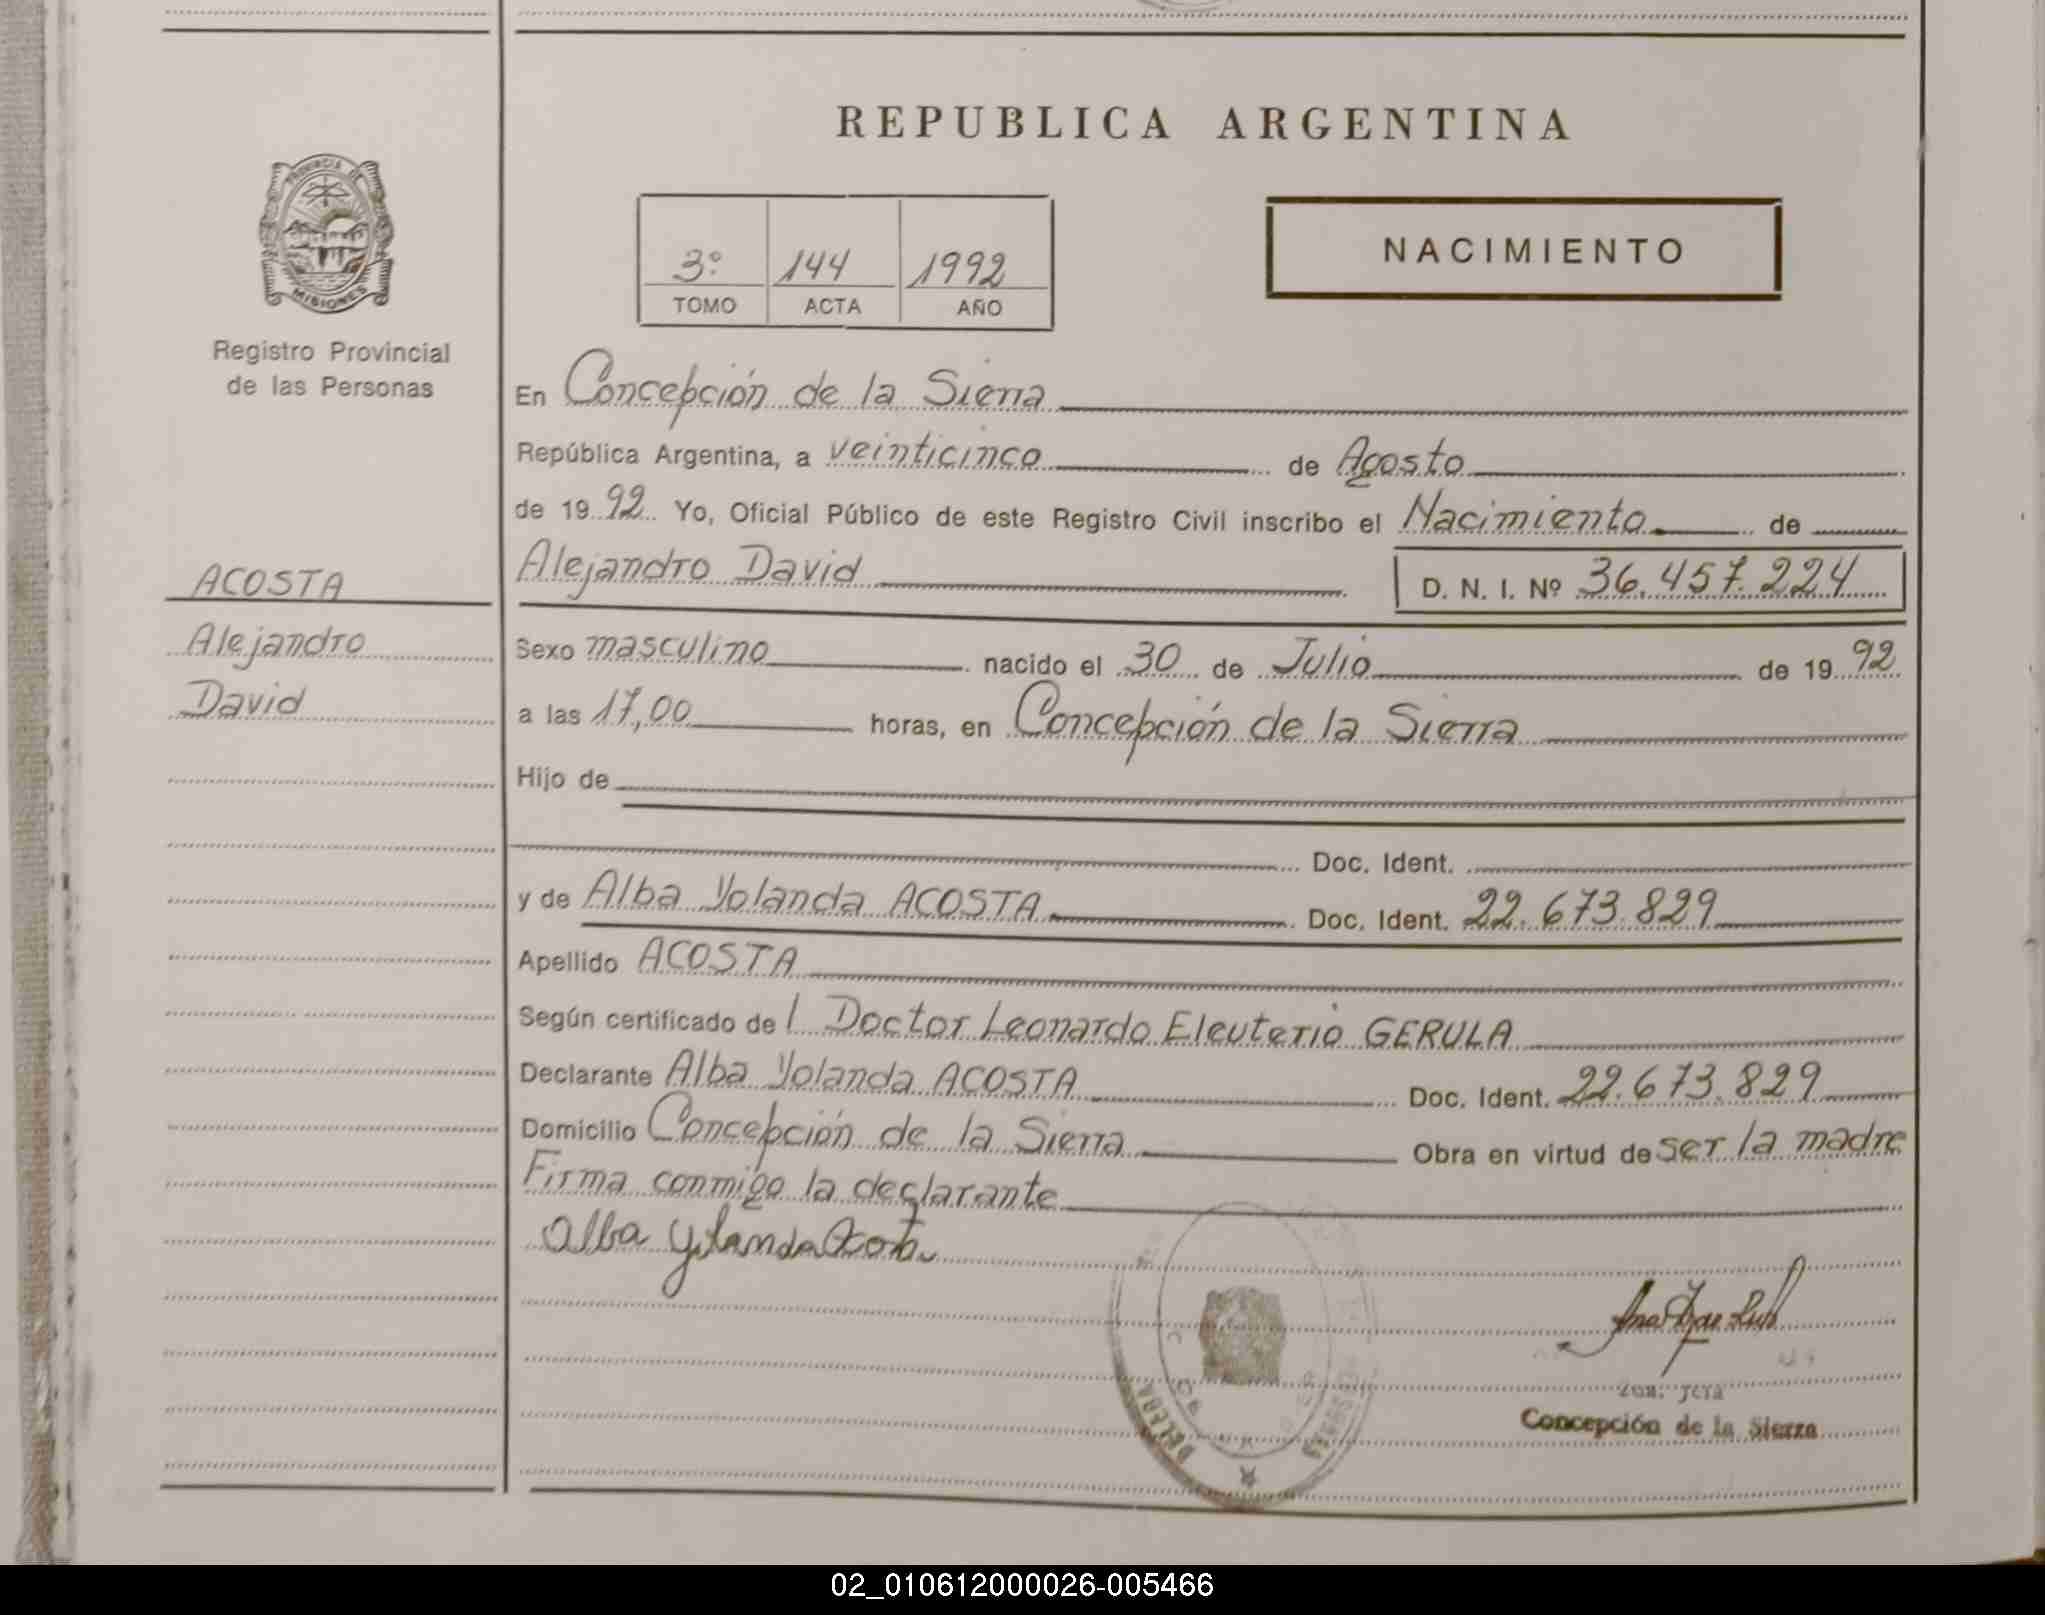 REPUBLICA ARGENTINA
PROVINCIA DE
MISIONES
Registro Provincial
de las Personas
3º 144 1992
TOMO ACTA AÑO
NACIMIENTO
En Concepción de la Sierra
República Argentina, a veinticinco de Agosto
de 19 92 Yo, Oficial Público de este Registro Civil inscribo el Nacimiento de
ACOSTA
Alejandro
David
Alejandro David D. N. I. Nº 36.457.224
Sexo masculino nacido el 30 de Julio de 19 92
a las 17,00 horas, en Concepción de la Sierra
Hijo de
Doc. Ident.
y de Alba Yolanda ACOSTA Doc. Ident. 22.673.829
Apellido ACOSTA
Según certificado de l Doctor Leonardo Eleuterio GERULA
Declarante Alba Yolanda ACOSTA Doc. Ident. 22.673.829
Domicilio Concepción de la Sierra Obra en virtud de ser la madre
Firma conmigo la declarante
Alba Yolanda Acosta
Concepción de la Sierra
02_010612000026-005466